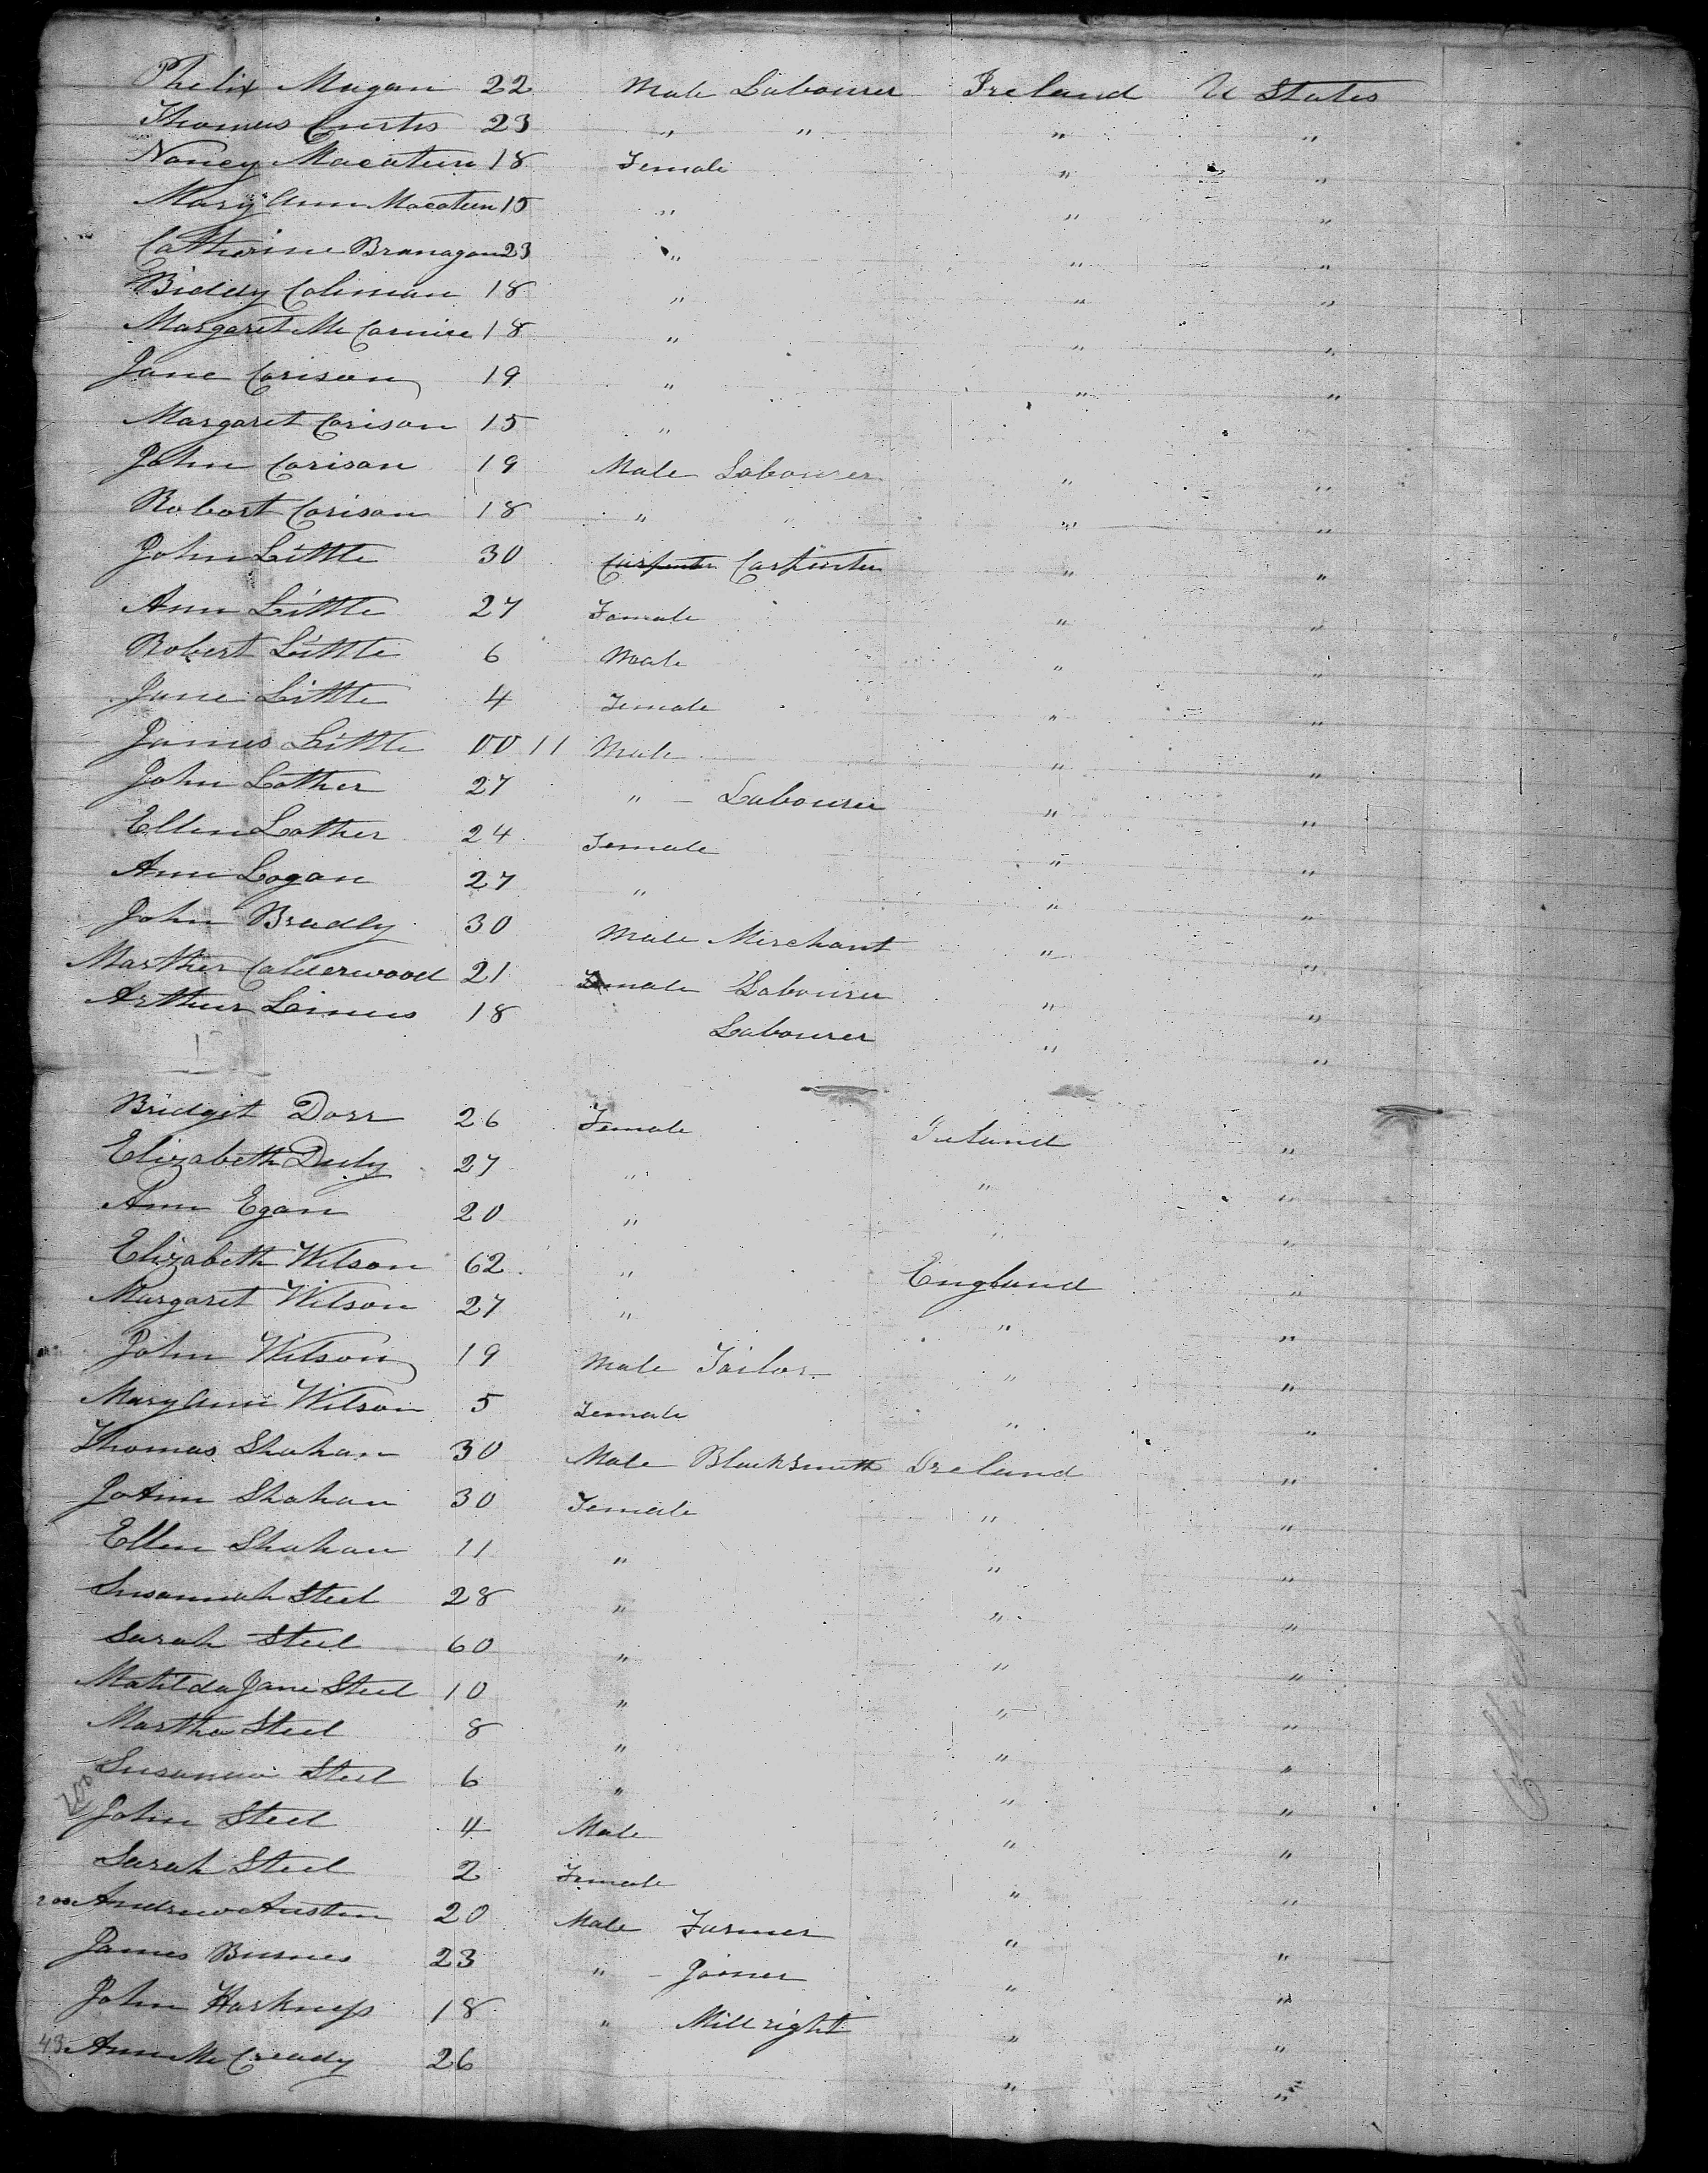 Phelix Magan 22 Male Labourer Ireland U States
Thomas Curtis 23 " " " "
Nancy Macateer 18 Female " "
Mary Ann Macateer 15 " " "
Catherine Branagan 23 " " "
Biddy Coleman 18 " " "
Margaret Mc 18 " " "
Jane Corison 19 " " "
Margaret Corison 15 "
John Corison 19 Male Labourer " "
Robert Corison 18 " " " "
John Little 30 Carpenter Carpenter " "
Ann Little 27 Female " "
Robert Little 6 Male " "
Jane Little 4 Female " "
James Little 00 11 Male " "
John Lother 27 " - Labourer " "
Ellen Lother 24 Female " "
Ann Logan 27 " " "
John Bradly 30 Male Merchant " "
Marther Calderwood 21 Female Labourer " "
Arthur 18 Labourer " "
Bridget Dorr 26 Female Ireland "
Elizabeth Duly 27 " " "
Ann Egan 20 " " "
Elizabeth Wilson 62 " England "
Margaret Wilson 27 " " "
John Wilson 19 Male Tailor " "
Mary Ann Wilson 5 Female " "
Thomas Shahan 30 Male Blacksmith Ireland "
JoAnn Shahan 30 Female " "
Ellen Shahan 11 " " "
Susannah Steel 28 " " "
Sarah Steel 60 " " "
Matilda Jane Steel 10 " " "
Martha Steel 8 " " "
Susanna Steel 6 " " "
200
John Steel 4 Male " "
Sarah Steel 2 Female " "
Andrew Austin 20 Male Farmer " "
James Burnes 23 " - Joiner " "
John Harkness 18 " Millright " "
48 Ann Mc Cready 26 " "